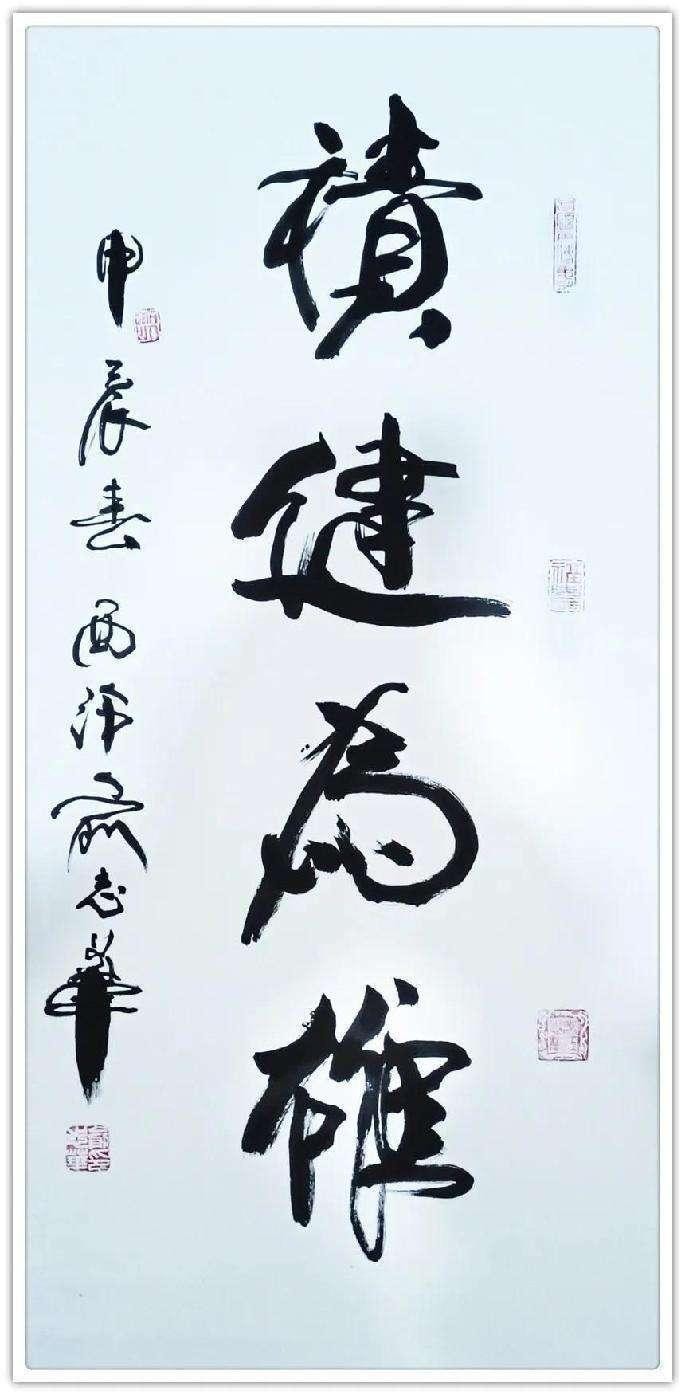 積健為雄
甲辰春西沛俞志華